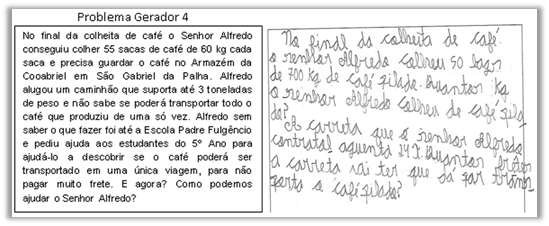 Problema Gerador 4
No final da colheita de café o Senhor Alfredo
conseguiu colher 55 sacas de café de 60 kg cada
saca e precisa guardar o café no Armazém da
Cooabriel em São Gabriel da Palha. Alfredo
alugou um caminhão que suporta até 3 toneladas
de peso e não sabe se poderá transportar todo o
café que produziu de uma só vez. Alfredo sem
saber o que fazer foi até a Escola Padre Fulgêncio
e pediu ajuda aos estudantes do 5º Ano para
ajudá-lo a descobrir se o café poderá ser
transportado em uma única viagem, para não
pagar muito frete. E agora? Como podemos
ajudar o Senhor Alfredo?
No final da colheita de café
o senhor Alfredo colheu 50 bags
de 700 kg de café pilado. Quantos kg
o senhor Alfredo colheu de café pila
do?
A carreta que o senhor Alfredo
contratal aguenta 14 T. Quantos fretes
a carreta vai ter que dá par trans
porta o café pilado?